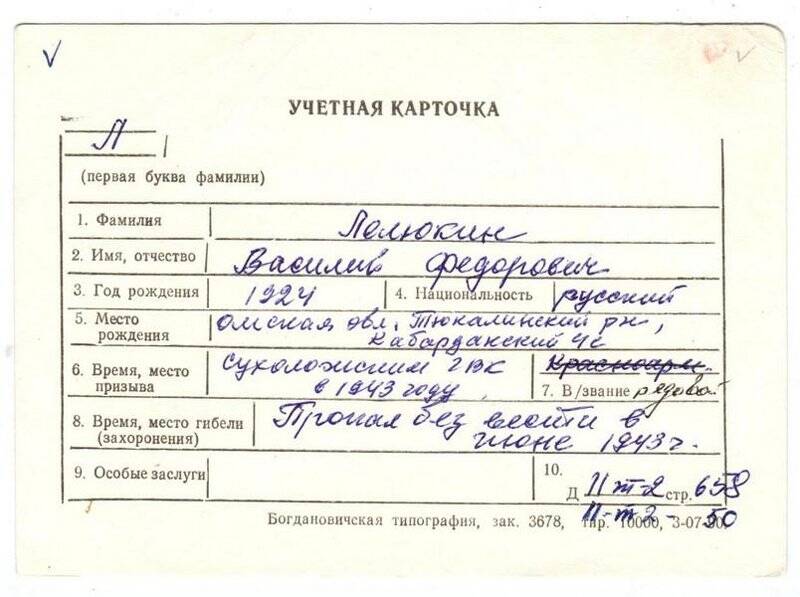 УЧЕТНАЯ КАРТОЧКА
Л
(первая буква фамилии)
1. Фамилия Лелюкин
2. Имя, отчество Василий Федорович
3. Год рождения 1924 4. Национальность русский
5. Место рождения Омская обл., Тюкалинский р-н,
Кабарданский с/с
6. Время, место призыва Сухоложским ГВК
в 1943 году
Красноарм.
7. В/звание рядовой
8. Время, место гибели (захоронения) Пропал без вести в
июне 1943 г.
9. Особые заслуги
10.
Д II т-2 стр. 658
II-т 2 - 50
Богдановичская типография, зак. 3678, тир. 10000, 3-07-90.